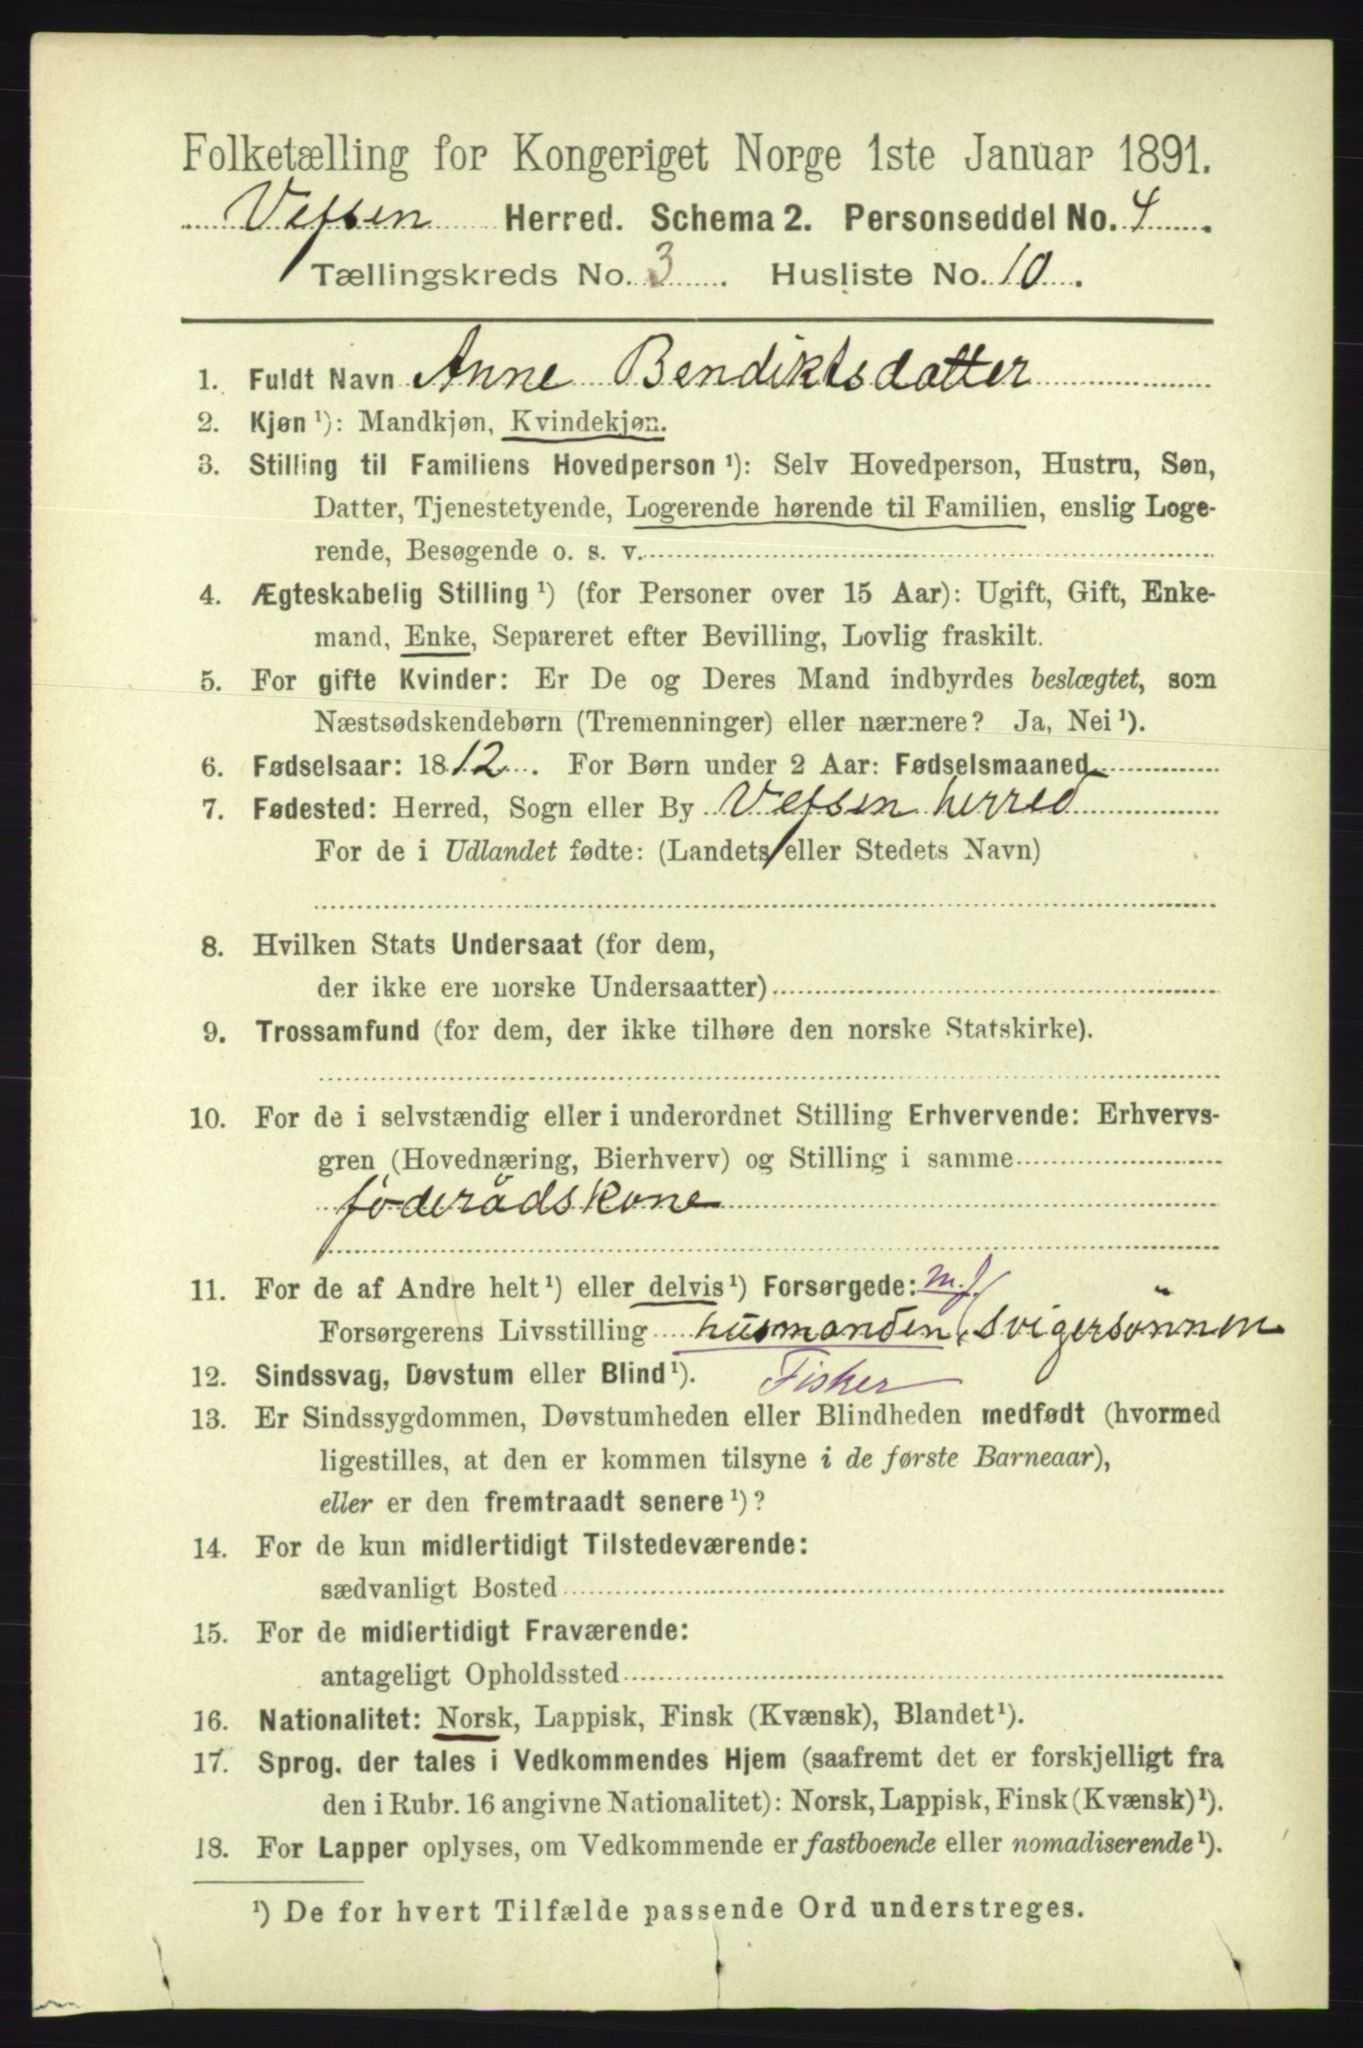 Folketælling for Kongeriget Norge 1ste Januar 1891.
Vefsen Herred. Schema 2. Personseddel No. 4
Tællingskreds No. 3. Husliste No. 10.
1. Fuldt Navn Anne Bendiktsdatter
2. Kjøn ¹): Mandkjøn, Kvindekjøn.
3. Stilling til Familiens Hovedperson ¹): Selv Hovedperson, Hustru, Søn,
Datter, Tjenestetyende, Logerende hørende til Familien, enslig Loge-
rende, Besøgende o. s. v.
4. Ægteskabelig Stilling ¹) (for Personer over 15 Aar): Ugift, Gift, Enke-
mand, Enke, Separeret efter Bevilling, Lovlig fraskilt.
5. For gifte Kvinder: Er De og Deres Mand indbyrdes beslægtet, som
Næstsødskendebørn (Tremenninger) eller nærmere? Ja, Nei ¹).
6. Fødselsaar: 1812. For Børn under 2 Aar: Fødselsmaaned
7. Fødested: Herred, Sogn eller By Vefsen herred
For de i Udlandet fødte: (Landets eller Stedets Navn)
8. Hvilken Stats Undersaat (for dem,
der ikke ere norske Undersaatter)
9. Trossamfund (for dem, der ikke tilhøre den norske Statskirke).
10. For de i selvstændig eller i underordnet Stilling Erhvervende: Erhvervs-
gren (Hovednæring, Bierhverv) og Stilling i samme
føderådskone
11. For de af Andre helt ¹) eller delvis ¹) Forsørgede: m.f.
Forsørgerens Livsstilling husmanden, Svigersönnen
12. Sindssvag, Døvstum eller Blind ¹). Fisker
13. Er Sindssygdommen, Døvstumheden eller Blindheden medfødt (hvormed
ligestilles, at den er kommen tilsyne i de første Barneaar),
eller er den fremtraadt senere ¹)?
14. For de kun midlertidigt Tilstedeværende:
sædvanligt Bosted
15. For de midlertidigt Fraværende:
antageligt Opholdssted
16. Nationalitet: Norsk, Lappisk, Finsk (Kvænsk), Blandet ¹).
17. Sprog, der tales i Vedkommendes Hjem (saafremt det er forskjelligt fra
den i Rubr. 16 angivne Nationalitet): Norsk, Lappisk, Finsk (Kvænsk) ¹).
18. For Lapper oplyses, om Vedkommende er fastboende eller nomadiserende ¹).
¹) De for hvert Tilfælde passende Ord understreges.